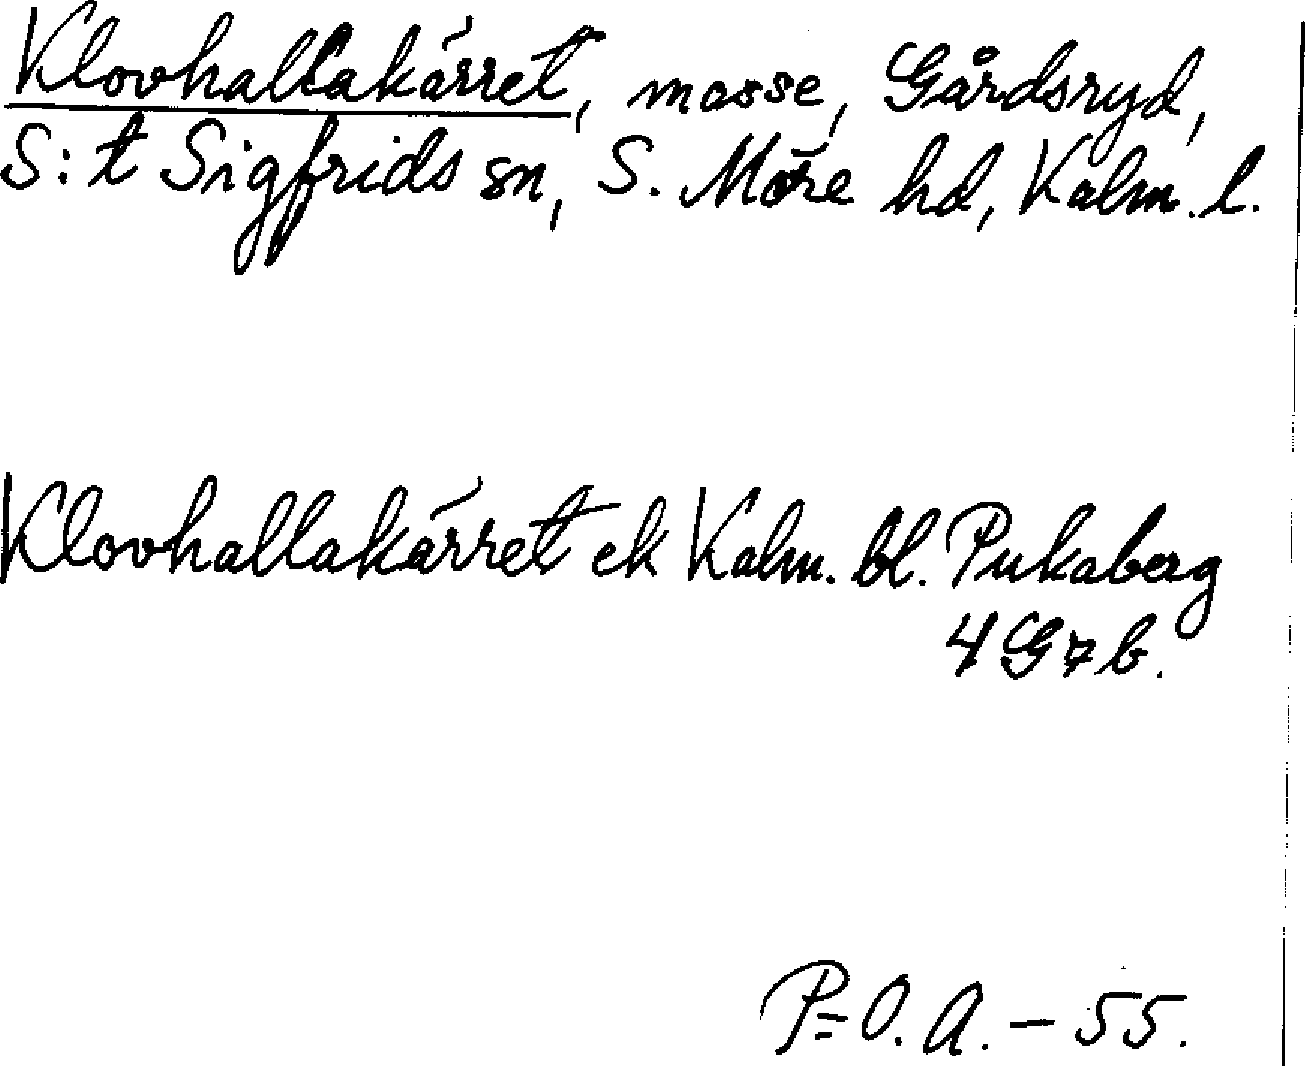 Klovhallakärret, mosse, Gårdsryd,
S:t Sigfrids sn, S. Möre hd, Kalm. l.
Klovhallakärret ek Kalm. bl. Pukaberg
4 G 7 b.
P=O.A.-55.